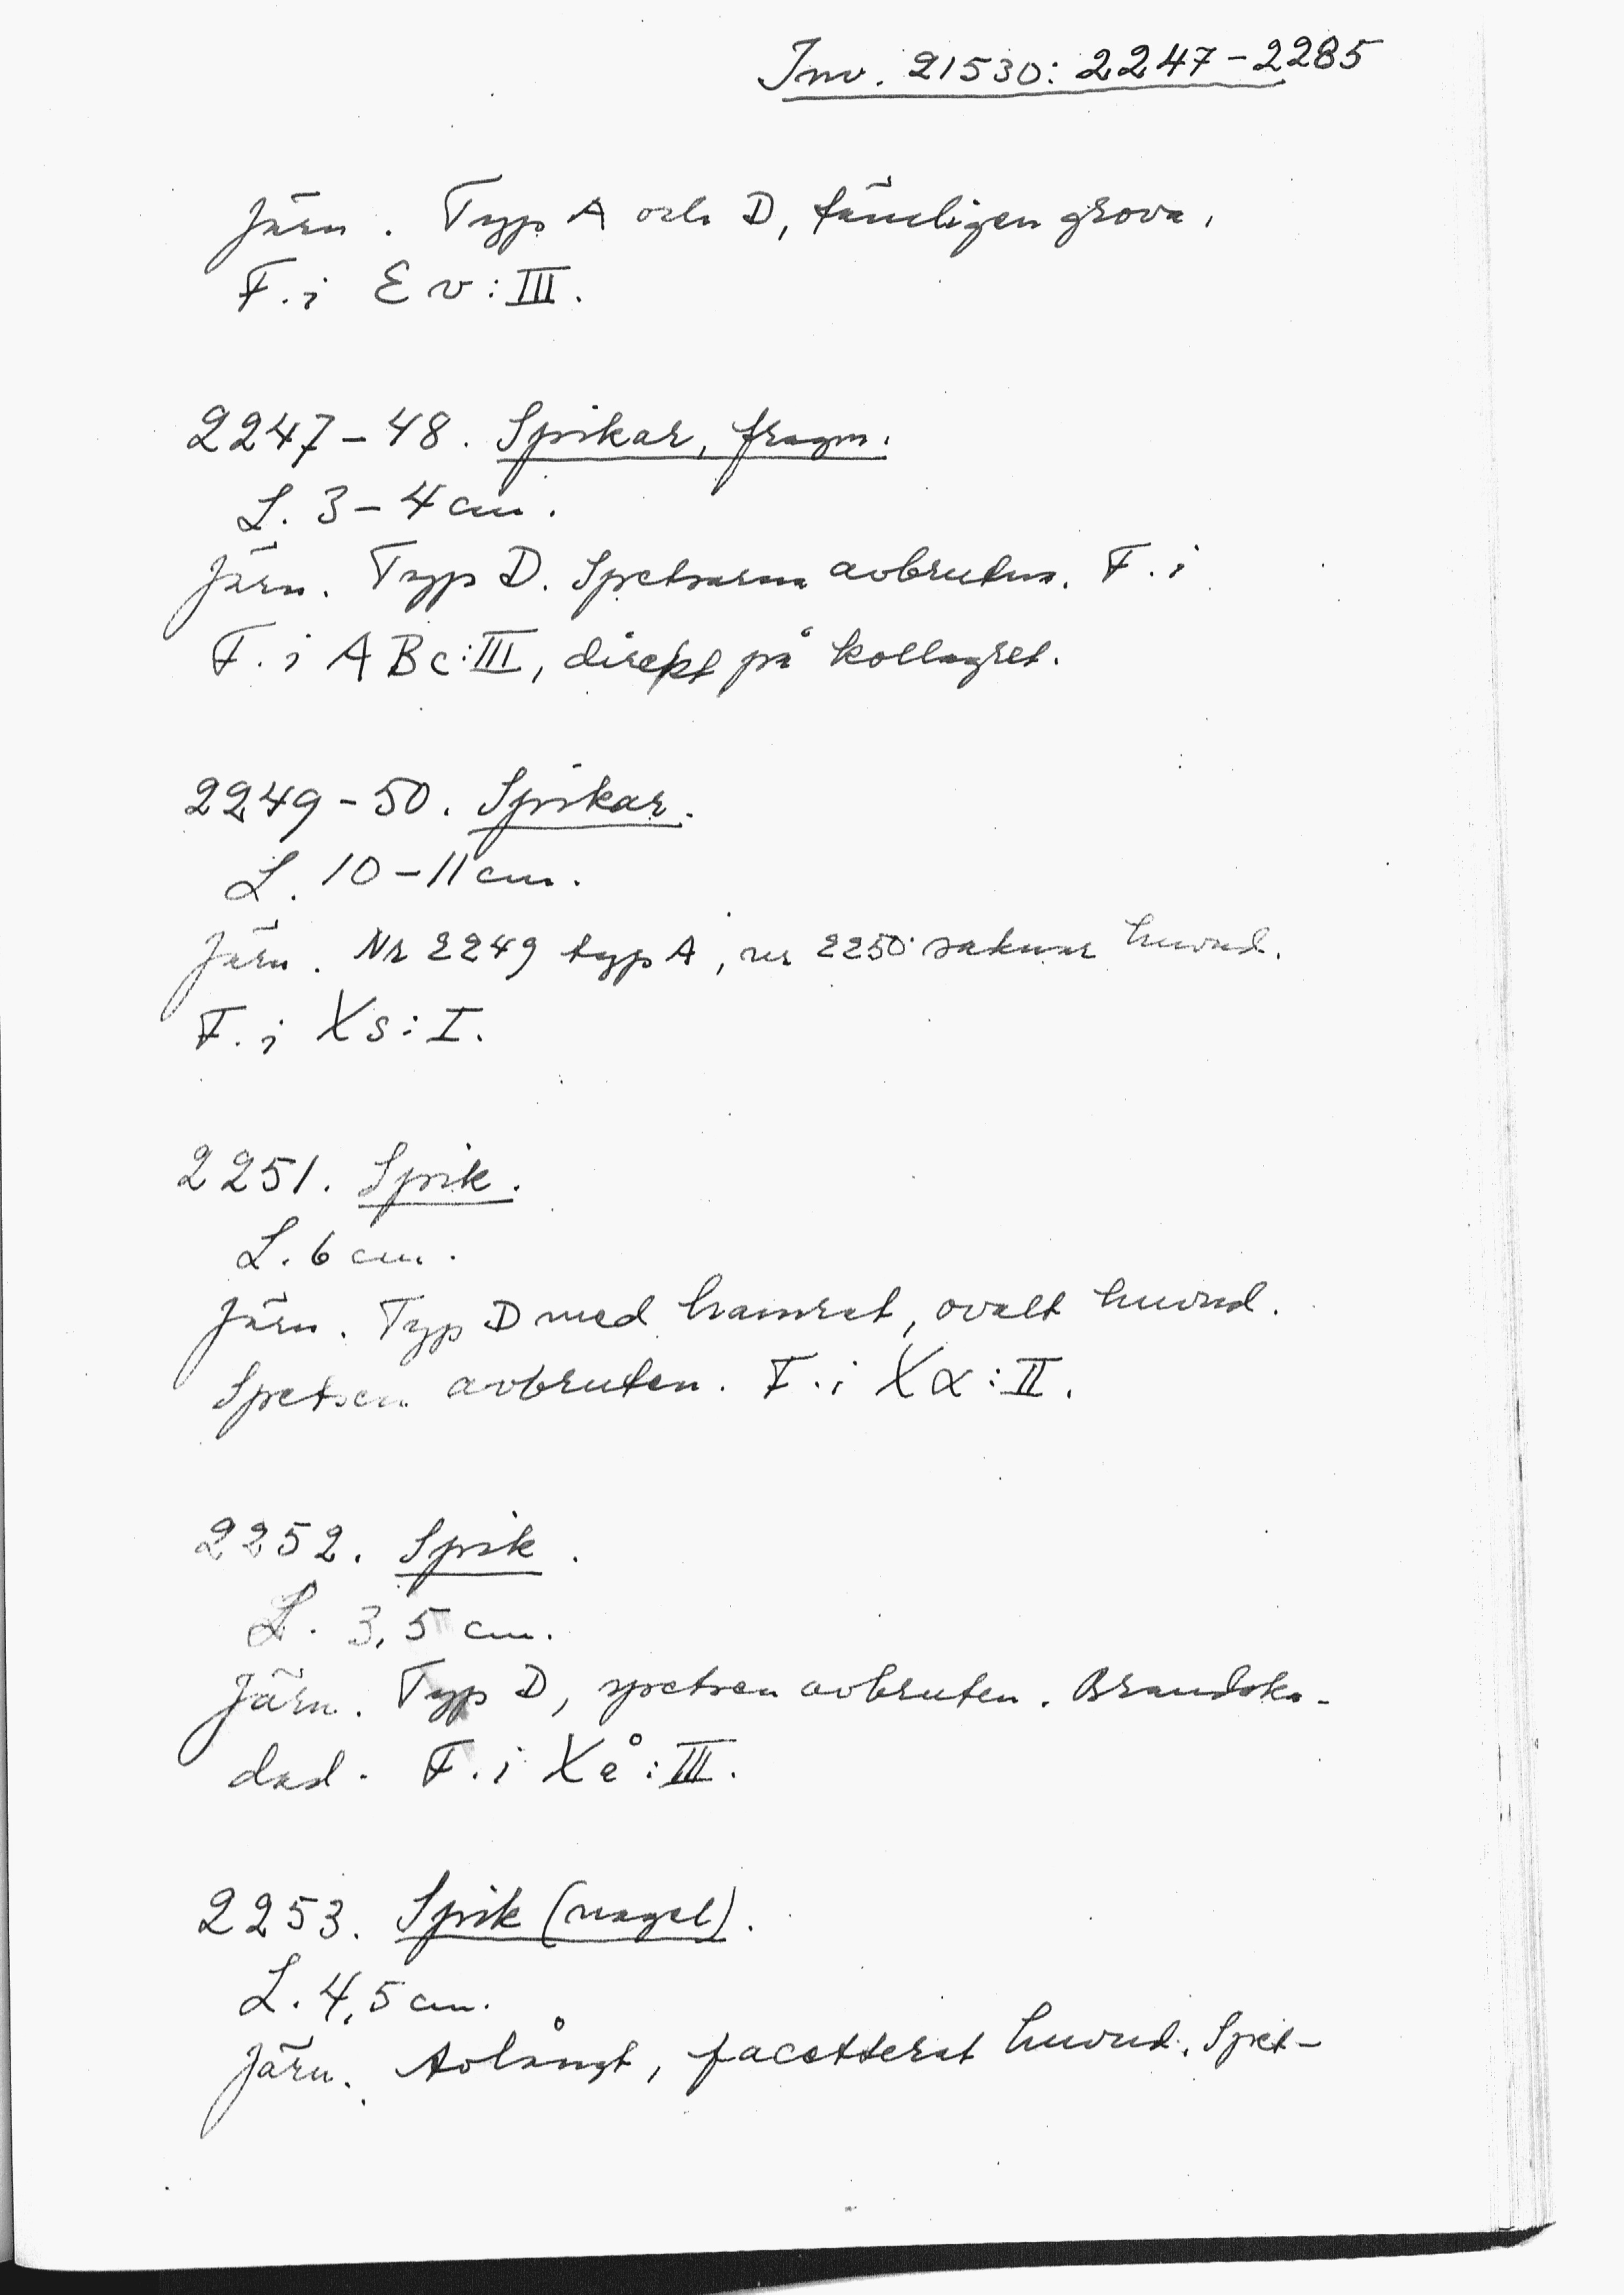 Inv. 21530: 2247-2285
Järn. Typ A och D, tämligen grova.
F. i Ev: III.
2247-48. Spikar, fragm.
L. 3-4 cm.
Järn. Typ D. Spetsarna avbrutna. F. i
F. i ABc: III, direkt på kollagret.
2249-50. Spikar.
L. 10-11 cm.
Järn. Nr 2249 typ A, nr 2250 saknar huvud.
F. i Xs: I.
2251. Spik.
L. 6 cm.
Järn. Typ D med hamrat, ovalt huvud.
Spetsen avbruten. F. i Xx: II.
2252. Spik.
L. 3,5 cm.
Järn. Typ D, spetsen avbruten. Brandska-
dad. F. i Xå: III.
2253. Spik (nagel).
L. 4,5 cm.
Järn. Avlångt, facetterat huvud. Spet-